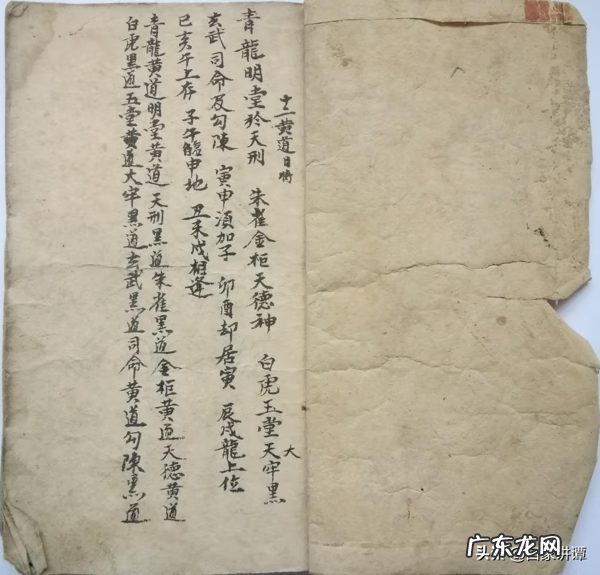 十二黄道日時
青龍明堂於天刑 朱雀金柜天德神 白虎玉堂天牢黑
大
玄武司命及勾陳 寅申湏加子 卯酉却居寅 辰戌龍上位
巳亥午上存 子午臨申地 丑未戌相逢
青龍黄道明堂黄道天刑黑道朱雀黑道金柜黄道天德黄道
白虎黑道玉堂黄道大牢黑道玄武黑道司命黄道勾陳黑道
广东龙网
家讲谭